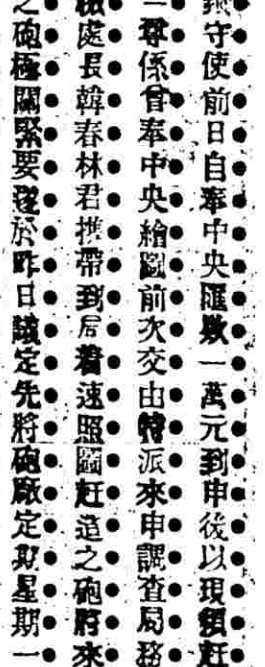 鎮守使前日自奉中央匯款一萬元到申後以現領趕
尊係曾奉中央繪圖前次交由特派來申調查局務
處長韓春林君携帶到局着速照圖趕造之砲將來
之砲極關緊要遂於昨日議定先將砲廠定期星期一